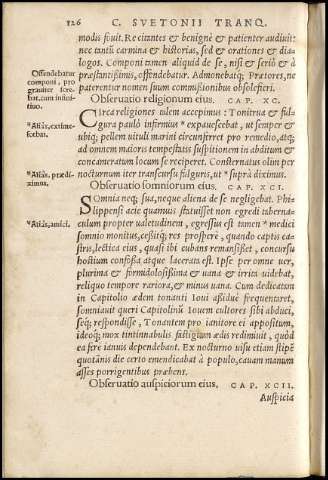 126 C. SVETONII TRANQ.
modis fouit. Recitantes & benignè & patienter audiuit:
nec tantũ carmina & historias, sed & orationes & dia-
logos. Componi tamen aliquid de se, nisi & seriò & à
præstantissimis, offendebatur. Admonebatq; Prætores, ne
paterentur nomen suum commissionibus obsolefieri.
Offendebatur
componi, pro
grauiter fere-
bat, cum infini-
tiuo.
Obseruatio religionum eius. CAP. XC.
Circa religiones talem accepimus: Tonitrua & ful-
gura paulò infirmius * expauescebat, ut semper &
ubiq; pellem uituli marini circunferret pro remedio, atq;
ad omnem maioris tempestatis suspitionem in abditum &
concameratum locum se reciperet. Consternatus olim per
nocturnum iter transcursu fulguris, ut * suprà diximus.
*Aliâs, expaue-
scebat.
*Aliâs, prædi-
ximus.
Obseruatio somniorum eius. CAP. XCI.
Somnia neq; sua, neque aliena de se negligebat. Phi-
lippensi acie quamuis statuisset non egredi taberna-
culum propter ualetudinem, egressus est tamen * medici
somnio monitus, cessitq; res prosperè, quando captis ca-
stris, lectica eius, quasi ibi cubans remansisset, concursu
hostium confossa atque lacerata est. Ipse per omne uer,
plurima & formidolosissima & uana & irrita uidebat,
reliquo tempore rariora, & minus uana. Cum dedicatam
in Capitolio ædem tonanti Ioui assiduè frequentaret,
somniauit queri Capitolinũ Iouem cultores sibi abduci,
seq; respondisse, Tonantem pro ianitore ei appositum,
ideoq; mox tintinnabulis fastigium ædis redimiuit, quòd
ea ferè ianuis dependebant. Ex nocturno uisu etiam stipẽ
quotannis die certo emendicabat à populo, cauam manum
asses porrigentibus præbens.
*Aliâs, amici.
Obseruatio auspiciorum eius. CAP. XCII.
Auspicia